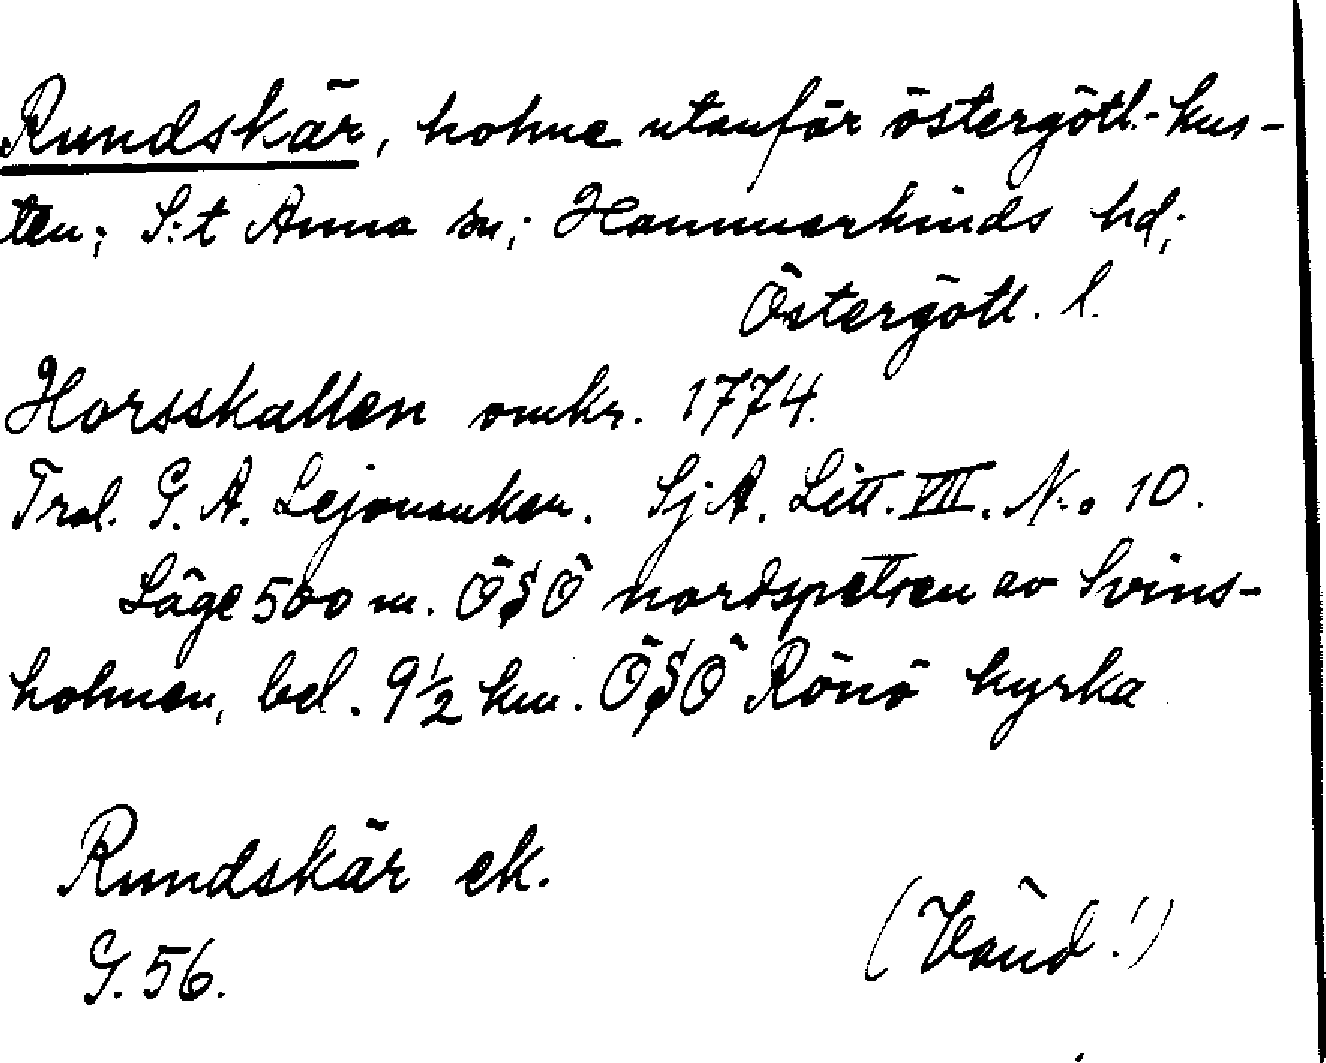 Rundskär, holme utanför östergötl.-kus-
ten; S:t Anna sn; Hammarkinds hd;
Östergötl. l.
Horsskallen omkr. 1774.
Trol. G. A. Lejonanker. Sj.A. Litt. VII. N:o 10.
Läge 500 m. ÖSÖ nordspetsen av Svins-
holmen, bel. 9½ km. ÖSÖ Rönö kyrka
Rundskär ek.
G. 56.
(Vänd!)